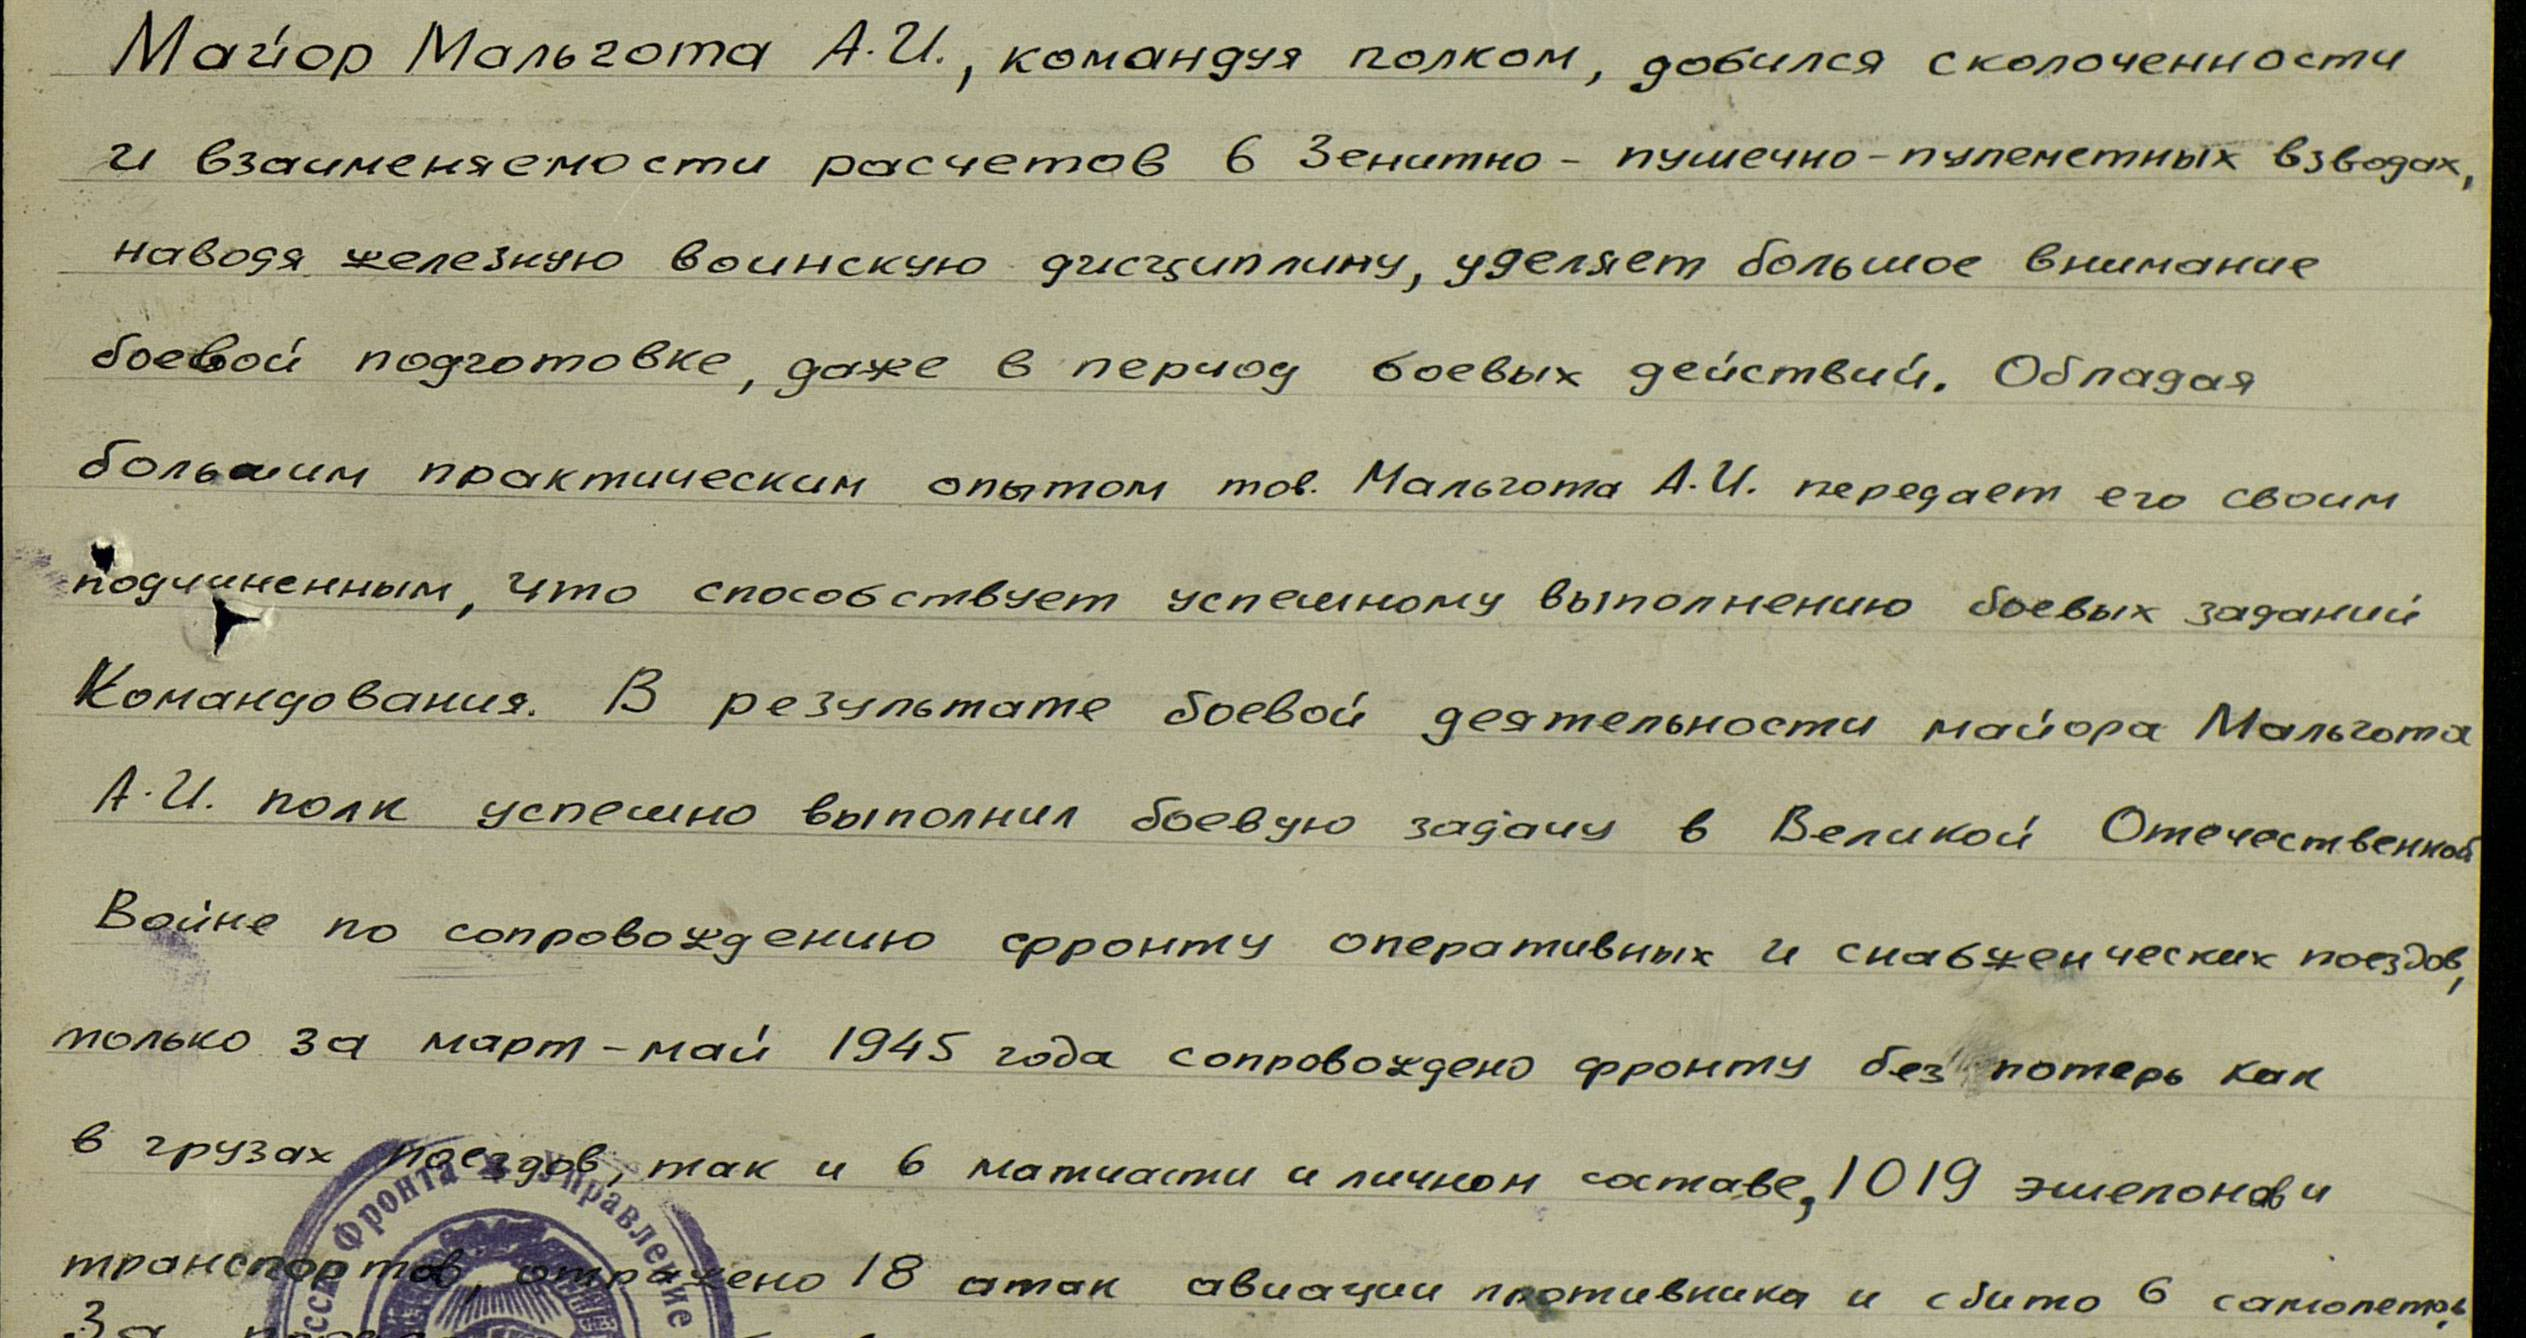 Майор Мальгота А.И., командуя полком, добился сколоченности
и взаименяемости расчетов в Зенитно-пушечно-пулеметных взводах,
наводя железную воинскую дисциплину, уделяет большое внимание
боевой подготовке, даже в период боевых действий. Обладая
большим практическим опытом тов. Мальгота А.И. передает его своим
подчиненным, что способствует успешному выполнению боевых заданий
Командования. В результате боевой деятельности майора Мальгота
А.И. полк успешно выполнил боевую задачу в Великой Отечественной
Войне по сопровождению фронту оперативных и снабженческих поездов,
только за март-май 1945 года сопровождено фронту без потерь как
в грузах поездов, так и в матчасти и личном составе, 1019 эшелонов и
транспортов, отражено 18 атак авиации противника и сбито 6 самолетов.
За
Фронта * Управление